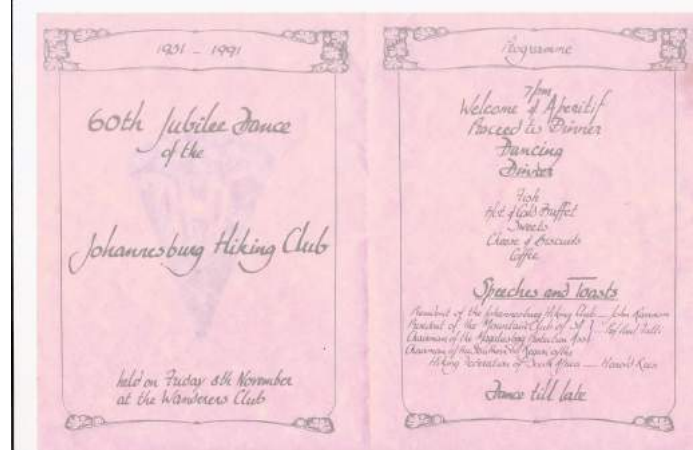 1931 - 1991
60th Jubilee Dance
of the
Johannesburg Hiking Club
held on Friday 8th November
at the Wanderers Club
Programme
7pm
Welcome & Aperitif
Proceed to Dinner
Dancing
Dinner
Fish
Hot & Cold Buffet
Sweets
Cheese & Biscuits
Coffee
Speeches and Toasts
President of the Johannesburg Hiking Club — John
President of the Mountain Club of SA
Chairman of the Magaliesberg Protection Assn
Chairman of the Southern Region of the
Hiking Federation of South Africa —
Dance till late